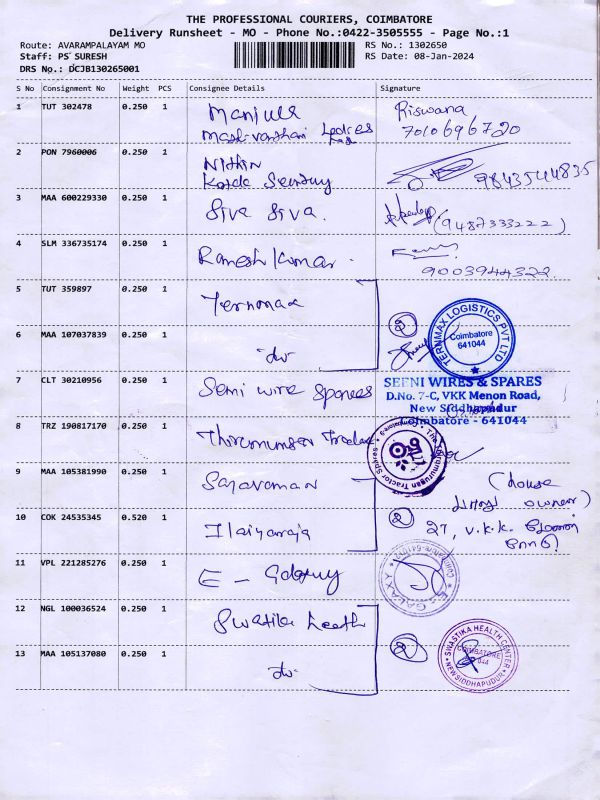 THE PROFESSIONAL COURIERS, COIMBATORE
Delivery Runsheet - MO - Phone No.:0422-3505555 - Page No.:1
Route: AVARAMPALAYAM MO RS No.: 1302650
Staff: PS SURESH RS Date: 08-Jan-2024
DRS No.: DCJB130265001
S No Consignment No Weight PCS Consignee Details Signature
1 TUT 302478 0.250 1 Manjula Riswana
7010696720
2 PON 7960006 0.250 1 Nithin
9843544835
3 MAA 600229330 0.250 1 Siva Siva. (9487333222)
4 SLM 336735174 0.250 1 Ramesh Kumar.
9003944322
5 TUT 359897 0.250 1 Ternmax
2 TERNMAX LOGISTICS PVT LTD
Coimbatore
641044
6 MAA 107037839 0.250 1 do
7 CLT 30210956 0.250 1 wire Spares
SEENI WIRES & SPARES
D.No. 7-C, VKK Menon Road,
New Siddhapudur
Coimbatore - 641044
8 TRZ 190817170 0.250 1 Thirumurugan
The Thirumurugan Tractor Spares
9 MAA 105381990 0.250 1 Saravanan (house
owner)
10 COK 24535345 0.520 1 Ilaiyaraja 2 27, V.K.K.
11 VPL 221285276 0.250 1 E - Galaxy
E-GALAXY
12 NGL 100036524 0.250 1 Swastika Health
2 SWASTIKA HEALTH CENTER
COIMBATORE
044
NEW SIDDHAPUDUR
13 MAA 105137080 0.250 1 do